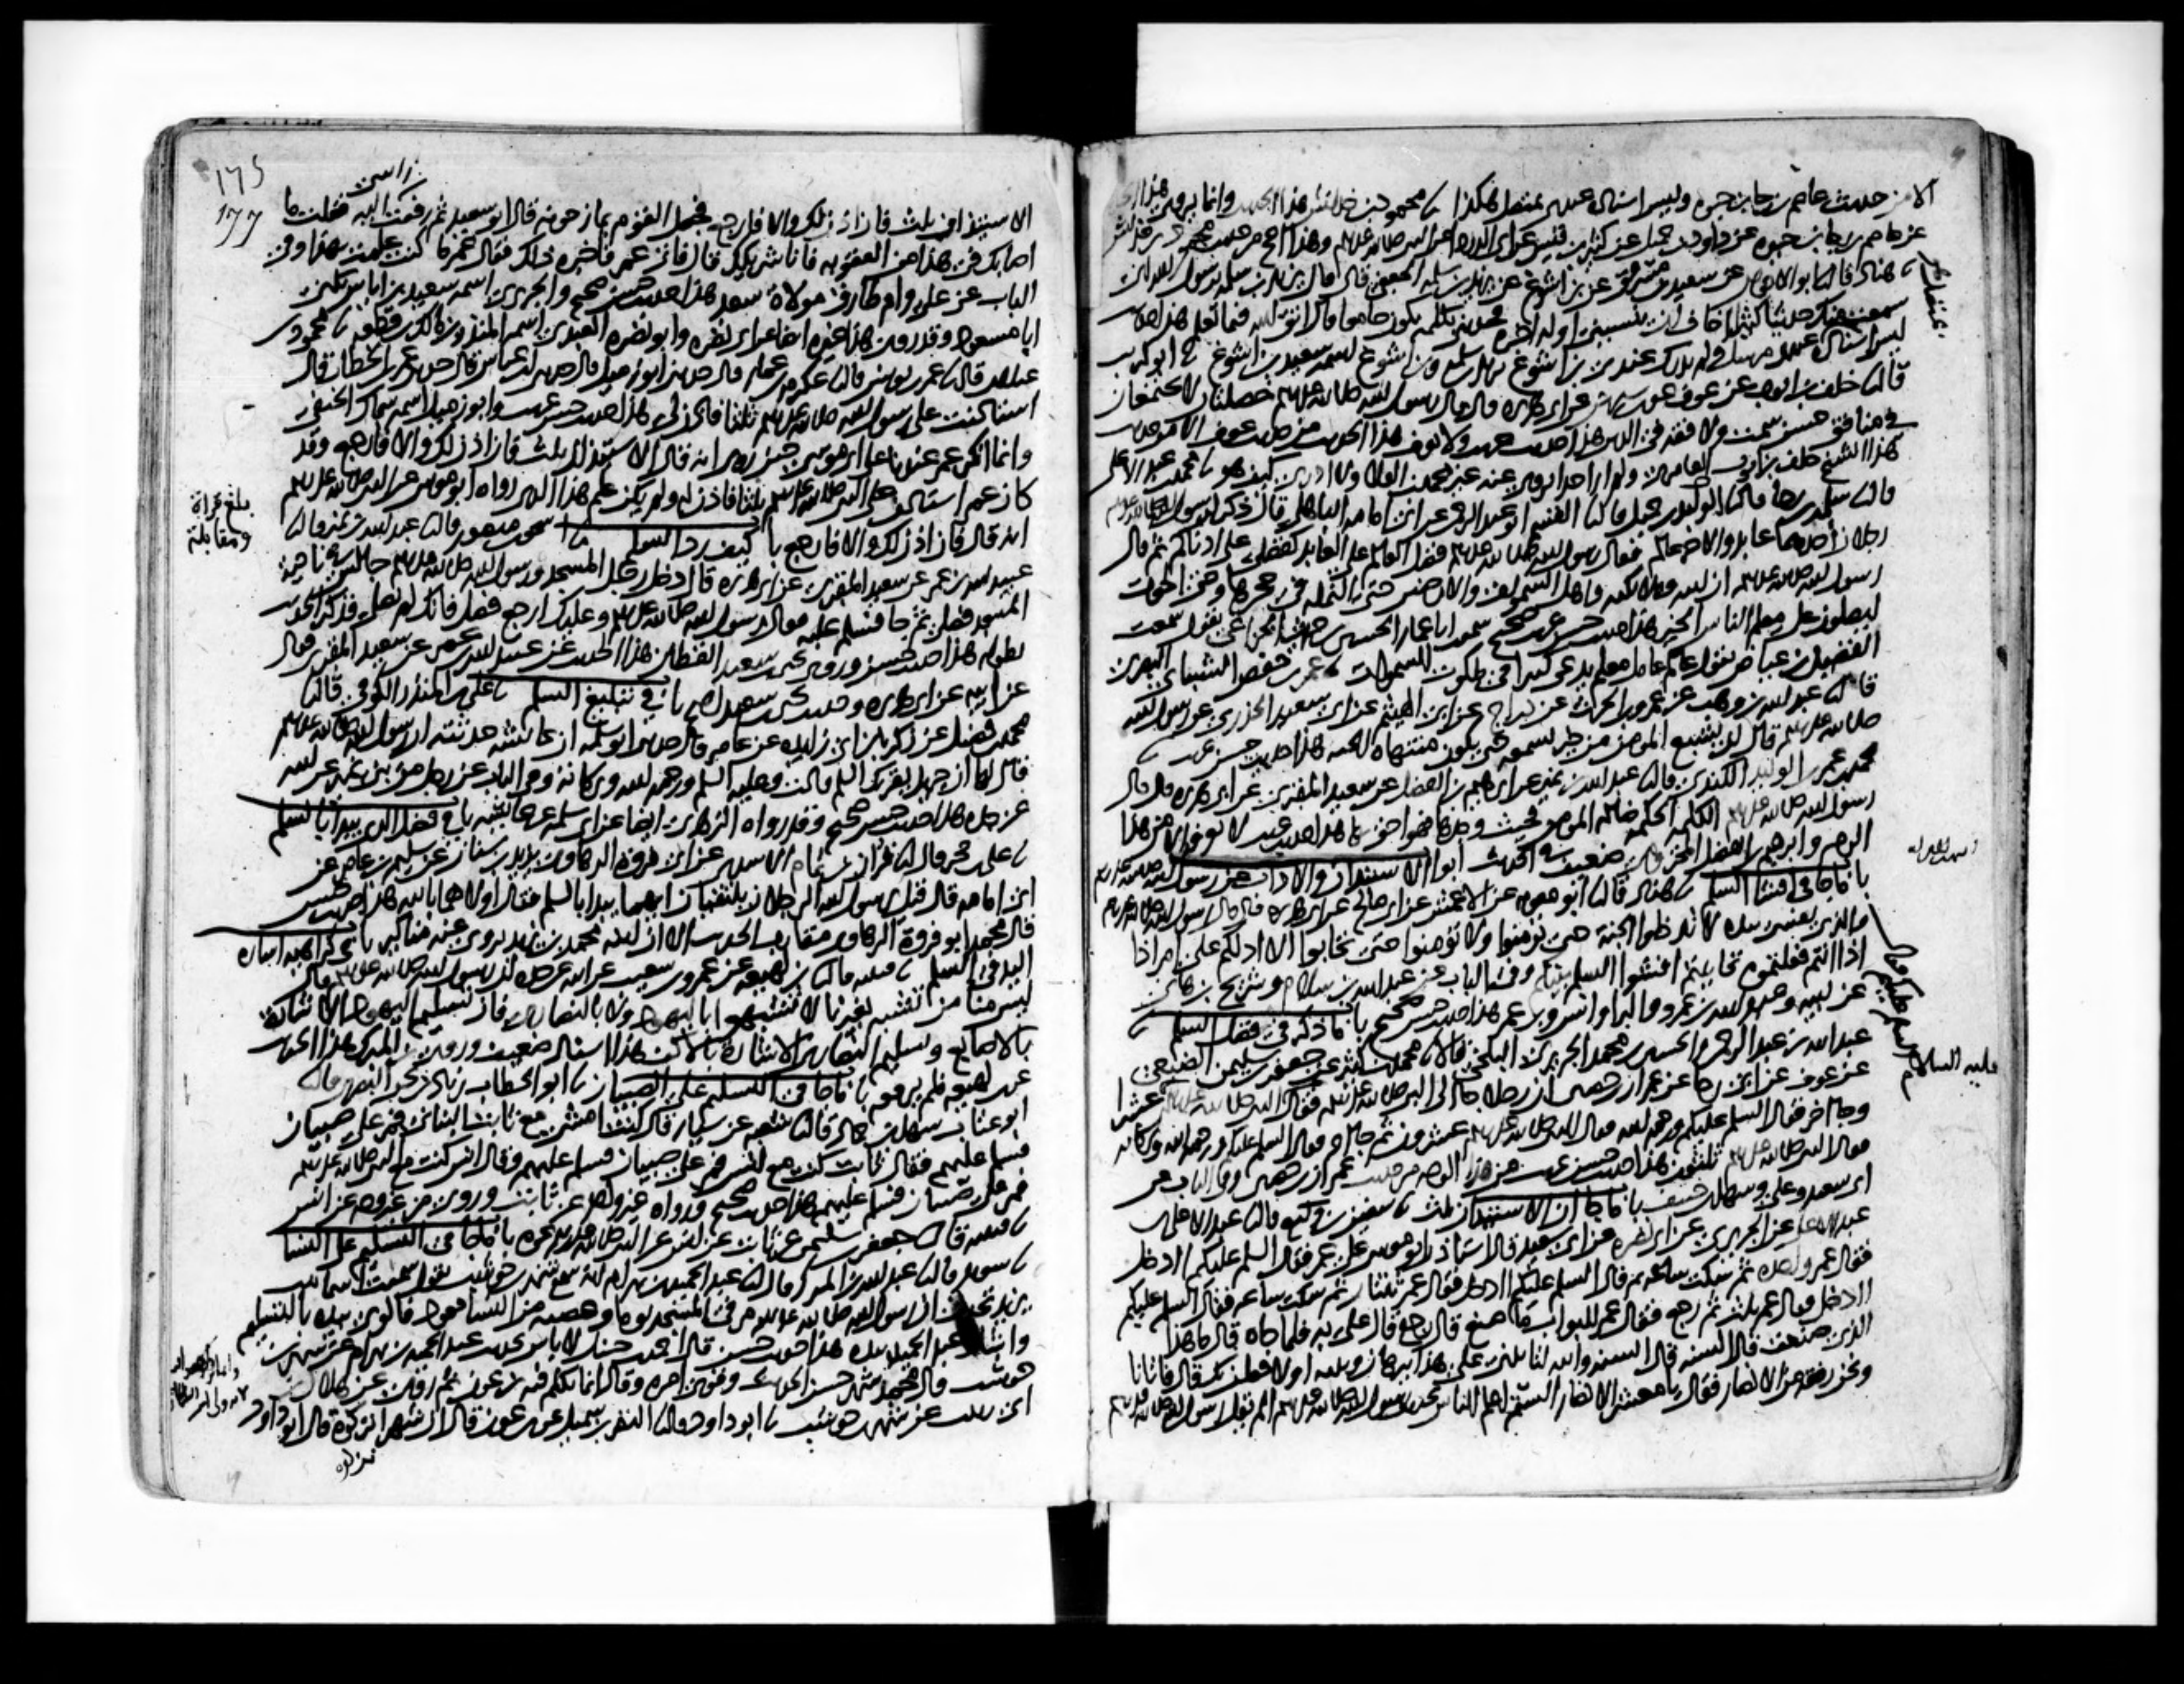 الا من حديث عاصم بن رجا بن حيوه وليس اسناده عندي بمتصل هكذا نا محمود بن خداش هذا الحديث وانما يروى هذا الحديث
عن عاصم بن رجا بن حيوه عن داود بن جميل عن كثير بن قيس عن ابي الدردا عن النبي صلى الله عليه وسلم وهذا اصح من حديث محمود بن خداش
نا هناد قال نا ابو الاحوص عن سعيد بن مسروق عن ابن اشوع عن يزيد بن سلمه الجعفي قال قال يزيد بن سلمه يرسول الله اني
سمعت منك حديثا كثيرا اخاف ان ينسيني اوله اخره فحدثني بكلمه تكون جماعا قال اتق الله فيما تعلم هذا حديث
ليس اسناده عندي مرسل ولم يدرك عندي ابن اشوع يزيد بن سلمه وابن اشوع اسمه سعيد بن اشوع نا ابو كريب
قال نا خلف بن ايوب عن عوف عن ابن سيرين عن ابي هريره قال قال رسول الله صلى الله عليه وسلم خصلتان لا تجتمعان
في منافق حسن سمت ولا فقه في الدين هذا حديث غريب ولا نعرف هذا الحديث من حديث عوف الا من حديث
هذا الشيخ خلف بن ايوب العامري ولم ار احدا يروي عنه غير محمد بن العلا ولا ادري كيف هو نا محمد بن عبد الاعلى
قال نا سلمه بن رجا قال نا الوليد بن جميل قال نا القسم ابو عبد الرحمن عن ابي امامه الباهلي قال ذكر لرسول الله صلى الله عليه وسلم
رجلان احدهما عابد والاخر عالم فقال رسول الله صلى الله عليه وسلم فضل العالم على العابد كفضلي على ادناكم ثم قال
رسول الله صلى الله عليه وسلم ان الله وملائكته واهل السموات والارضين حتى النمله في جحرها وحتى الحوت
ليصلون على معلم الناس الخير هذا حديث حسن غريب صحيح سمعت ابا عمار الحسين بن حريث الخزاعي يقول سمعت
الفضيل بن عياض يقول عالم عامل معلم يدعى كبيرا في ملكوت السموات نا عمر بن حفص الشيباني البصري
قال نا عبد الله بن وهب عن عمرو بن الحرث عن دراج عن ابي الهيثم عن ابي سعيد الخدري عن رسول الله
صلى الله عليه وسلم قال لن يشبع المومن من خير يسمعه حتى يكون منتهاه الجنه هذا حديث حسن غريب نا
محمد بن عمر بن الوليد الكندي قال نا عبد الله بن نمير عن ابرهيم بن الفضل عن سعيد المقبري عن ابي هريره قال قال
رسول الله صلى الله عليه وسلم الكلمه الحكمه ضاله المومن فحيث وجدها فهو احق بها هذا حديث غريب لا نعرفه الا من هذا
الوجه وابرهيم بن الفضل المخزومي ضعيف في الحديث ابواب الاستيذان والاداب عن رسول الله صلى الله عليه وسلم
باب ما جا في افشا السلم نا هناد قال نا ابو معويه عن الاعمش عن ابي صالح عن ابي هريره قال قال رسول الله صلى الله عليه وسلم
والذي نفسي بيده لا تدخلوا الجنة حتى تومنوا ولا تؤمنوا حتى تحابوا الا ادلكم على امر اذا
اذا انتم فعلتموه تحاببتم افشوا السلم بينكم وفي الباب عن عبد الله بن سلام وشريح بن هاني
عن ابيه وعبد الله بن عمرو والبرا وانس وابن عمر هذا حديث حسن صحيح باب ما ذكر في فضل السلم نا
عبد الله بن عبد الرحمن والحسين بن محمد الجريري البلخي قالا نا محمد بن كثير عن جعفر بن سليمن الضبعي
عن عوف عن ابي رجا عن عمران بن حصين ان رجلا جا الى النبي صلى الله عليه وسلم فقال النبي صلى الله عليه وسلم عشر
وجا اخر فقال السلم عليكم ورحمه الله فقال النبي صلى الله عليه وسلم عشرون ثم جا اخر فقال السلم عليكم ورحمه الله وبركاته
فقال النبي صلى الله عليه وسلم ثلثون هذا حديث حسن غريب من هذا الوجه من حديث عمران بن حصين وفي الباب عن
ابي سعيد وعلي وسهل بن حنيف باب ما جا ان الاستيذان ثلث نا سفين بن وكيع قال نا عبد الاعلى بن
عبد الاعلى عن الجريري عن ابي نضره عن ابي سعيد قال استاذن ابو موسى على عمر فقال السلم عليكم اادخل
فقال عمر واحده ثم سكت ساعه ثم قال السلم عليكم اادخل فقال عمر ثنتان ثم سكت ساعه فقال السلم عليكم
اادخل فقال عمر ثلث ثم رجع فقال عمر للبواب ما صنع قال رجع قال علي به فلما جاه قال ما هذا
الذي صنعت قال السنه قال السنه والله لتاتيني على هذا ببرهان وبينه او لافعلن بك قال فاتانا
ونحن رفقه من الانصار فقال يا معشر الانصار الستم اعلم الناس بحديث رسول الله صلى الله عليه وسلم الم يقل رسول الله صلى الله عليه وسلم
عليه السلام
١٦٥
١٧٧
الاستيذان ثلث فان اذن لك والا فارجع فجعل القوم يمازحونه قال ابو سعيد ثم رفعت راسي اليه فقلت ما
اصابك في هذا من العقوبه فانا شريكك قال فاتى عمر فاخبره بذلك فقال عمر ما كنت علمت بهذا وفي
الباب عن علي وام طارق مولاة سعد هذا حديث حسن صحيح والجريري اسمه سعيد بن اياس يكنى
ابا مسعود وقد روى هذا غيره ايضا عن ابي نضره وابو نضره العبدي اسمه المنذر بن مالك بن قطعه نا محمود بن
غيلان قال نا عمر بن يونس قال نا عكرمه بن عمار قال حدثني ابو زميل قال حدثني ابن عباس قال حدثني عمر بن الخطاب قال
استاذنت على رسول الله صلى الله عليه وسلم ثلثا فاذن لي هذا حديث حسن غريب وابو زميل اسمه سماك الحنفي
وانما انكر عمر عندنا على ابي موسى حين روى انه قال الاستيذان ثلث فان اذن لك والا فارجع وقد
كان عمر استاذن على النبي صلى الله عليه وسلم ثلثا فاذن له ولم يكن علم هذا الذي رواه ابو موسى عن النبي صلى الله عليه وسلم
انه قال فان اذن لك والا فارجع باب كيف رد السلم نا اسحق بن منصور قال نا عبد الله بن نمير قال نا
عبيد الله بن عمر عن سعيد المقبري عن ابي هريره قال دخل رجل المسجد ورسول الله صلى الله عليه وسلم جالس في ناحية
المسجد فصلى ثم جا فسلم عليه فقال رسول الله صلى الله عليه وسلم وعليك ارجع فصل فانك لم تصل فذكر الحديث
بطوله هذا حديث حسن وروى يحيى بن سعيد القطان هذا الحديث عن عبيد الله بن عمر عن سعيد المقبري فقال
عن ابيه عن ابي هريره وحديث يحيى بن سعيد اصح باب في تبليغ السلم نا علي بن المنذر الكوفي قال نا
محمد بن فضيل عن زكريا بن ابي زايده عن عامر قال حدثني ابو سلمه ان عائشه حدثته ان رسول الله صلى الله عليه وسلم
قال لها ان جبريل يقريك السلم قالت وعليه السلم ورحمه الله وبركاته وفي الباب عن رجل من بني نمير عن ابيه
عن جده هذا حديث حسن صحيح وقد رواه الزهري ايضا عن ابي سلمه عن عائشه باب في فضل الذي يبدا بالسلم
نا علي بن حجر قال نا قران بن تمام الاسدي عن ابي فروة الرهاوي يزيد بن سنان عن سليم بن عامر عن
ابي امامه قال قيل يرسول الله الرجلان يلتقيان ايهما يبدا بالسلم فقال اولاهما بالله هذا حديث حسن
قال محمد ابو فروة الرهاوي مقارب الحديث الا ان ابنه محمد بن يزيد يروي عنه مناكير باب في كراهيه اشاره
اليد في السلم نا قتيبه قال نا ابن لهيعه عن عمرو بن شعيب عن ابيه عن جده ان رسول الله صلى الله عليه وسلم قال
ليس منا من تشبه بغيرنا لا تشبهوا باليهود ولا بالنصارى فان تسليم اليهود الاشارة
بالاصابع وتسليم النصارى الاشارة بالاكف هذا اسناده ضعيف وروى ابن المبارك هذا الحديث
عن ابن لهيعه فلم يرفعه باب ما جا في التسليم على الصبيان نا ابو الخطاب زياد بن يحيى البصري قال نا
ابو عتاب سهل بن حماد قال نا شعبه عن سيار قال كنت امشي مع ثابت البناني فمر على صبيان
فسلم عليهم فقال ثابت كنت مع انس فمر على صبيان فسلم عليهم وقال انس كنت مع النبي صلى الله عليه وسلم
فمر على صبيان فسلم عليهم هذا حديث صحيح ورواه غير واحد عن ثابت وروي من غير وجه عن انس
نا قتيبه قال نا جعفر بن سليمن عن ثابت عن انس عن النبي صلى الله عليه وسلم نحوه باب ما جا في التسليم على النسا
نا سويد قال نا عبد الله بن المبارك قال نا عبد الحميد بن بهرام انه سمع شهر بن حوشب يقول سمعت اسما بنت
يزيد تحدث ان رسول الله صلى الله عليه وسلم مر في المسجد يوما وعصبه من النسا قعود فالوى بيده بالتسليم
واشار عبد الحميد بيده هذا حديث حسن قال احمد بن حنبل لا باس بحديث عبد الحميد بن بهرام عن شهر بن
حوشب وقال محمد شهر حسن الحديث وقوى امره وقال انما تكلم فيه ابن عون ثم روى عن هلال بن
ابي زينب عن شهر بن حوشب نا ابو داود قال نا النضر بن شميل عن ابن عون قال ان شهرا نزكوه قال ابو داود
بلغ قراة
ومقابلة